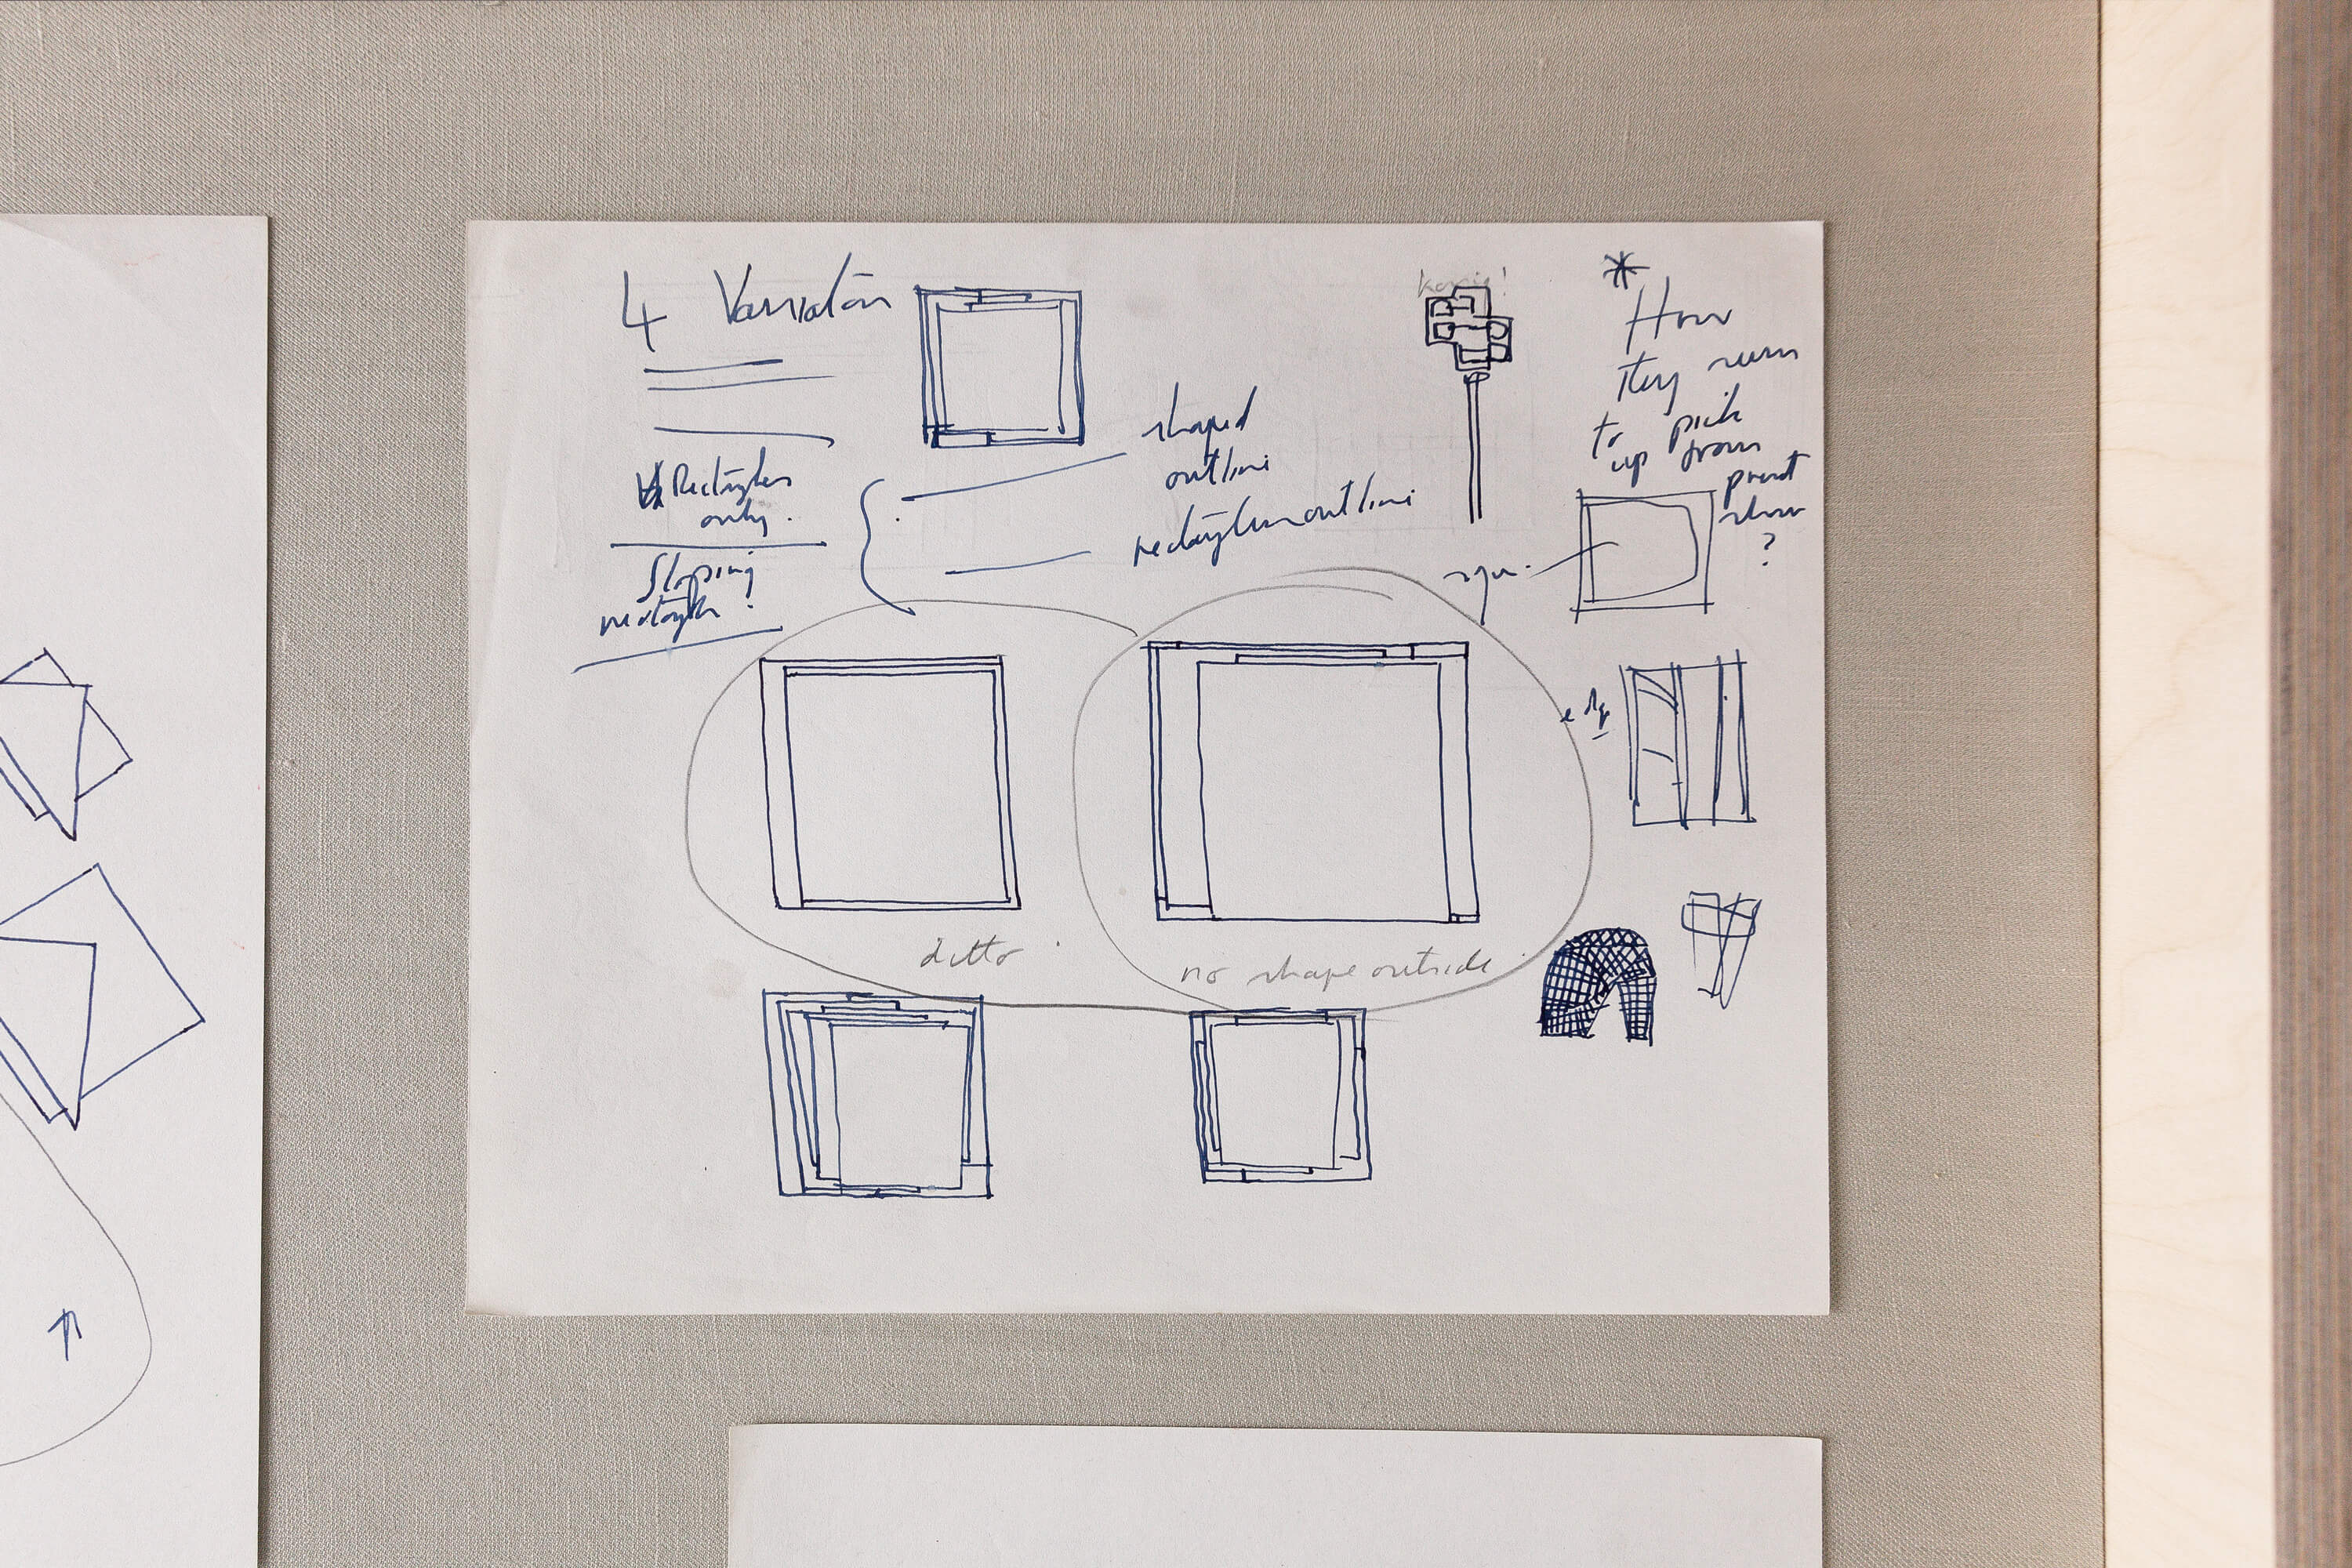 4 Variation
Rectangles
only.
Sloping
rectangles.
shaped
outline
rectangular outline
*
How
they seem
to pick
up from
print
show
?
edge
ditto
no shape outside